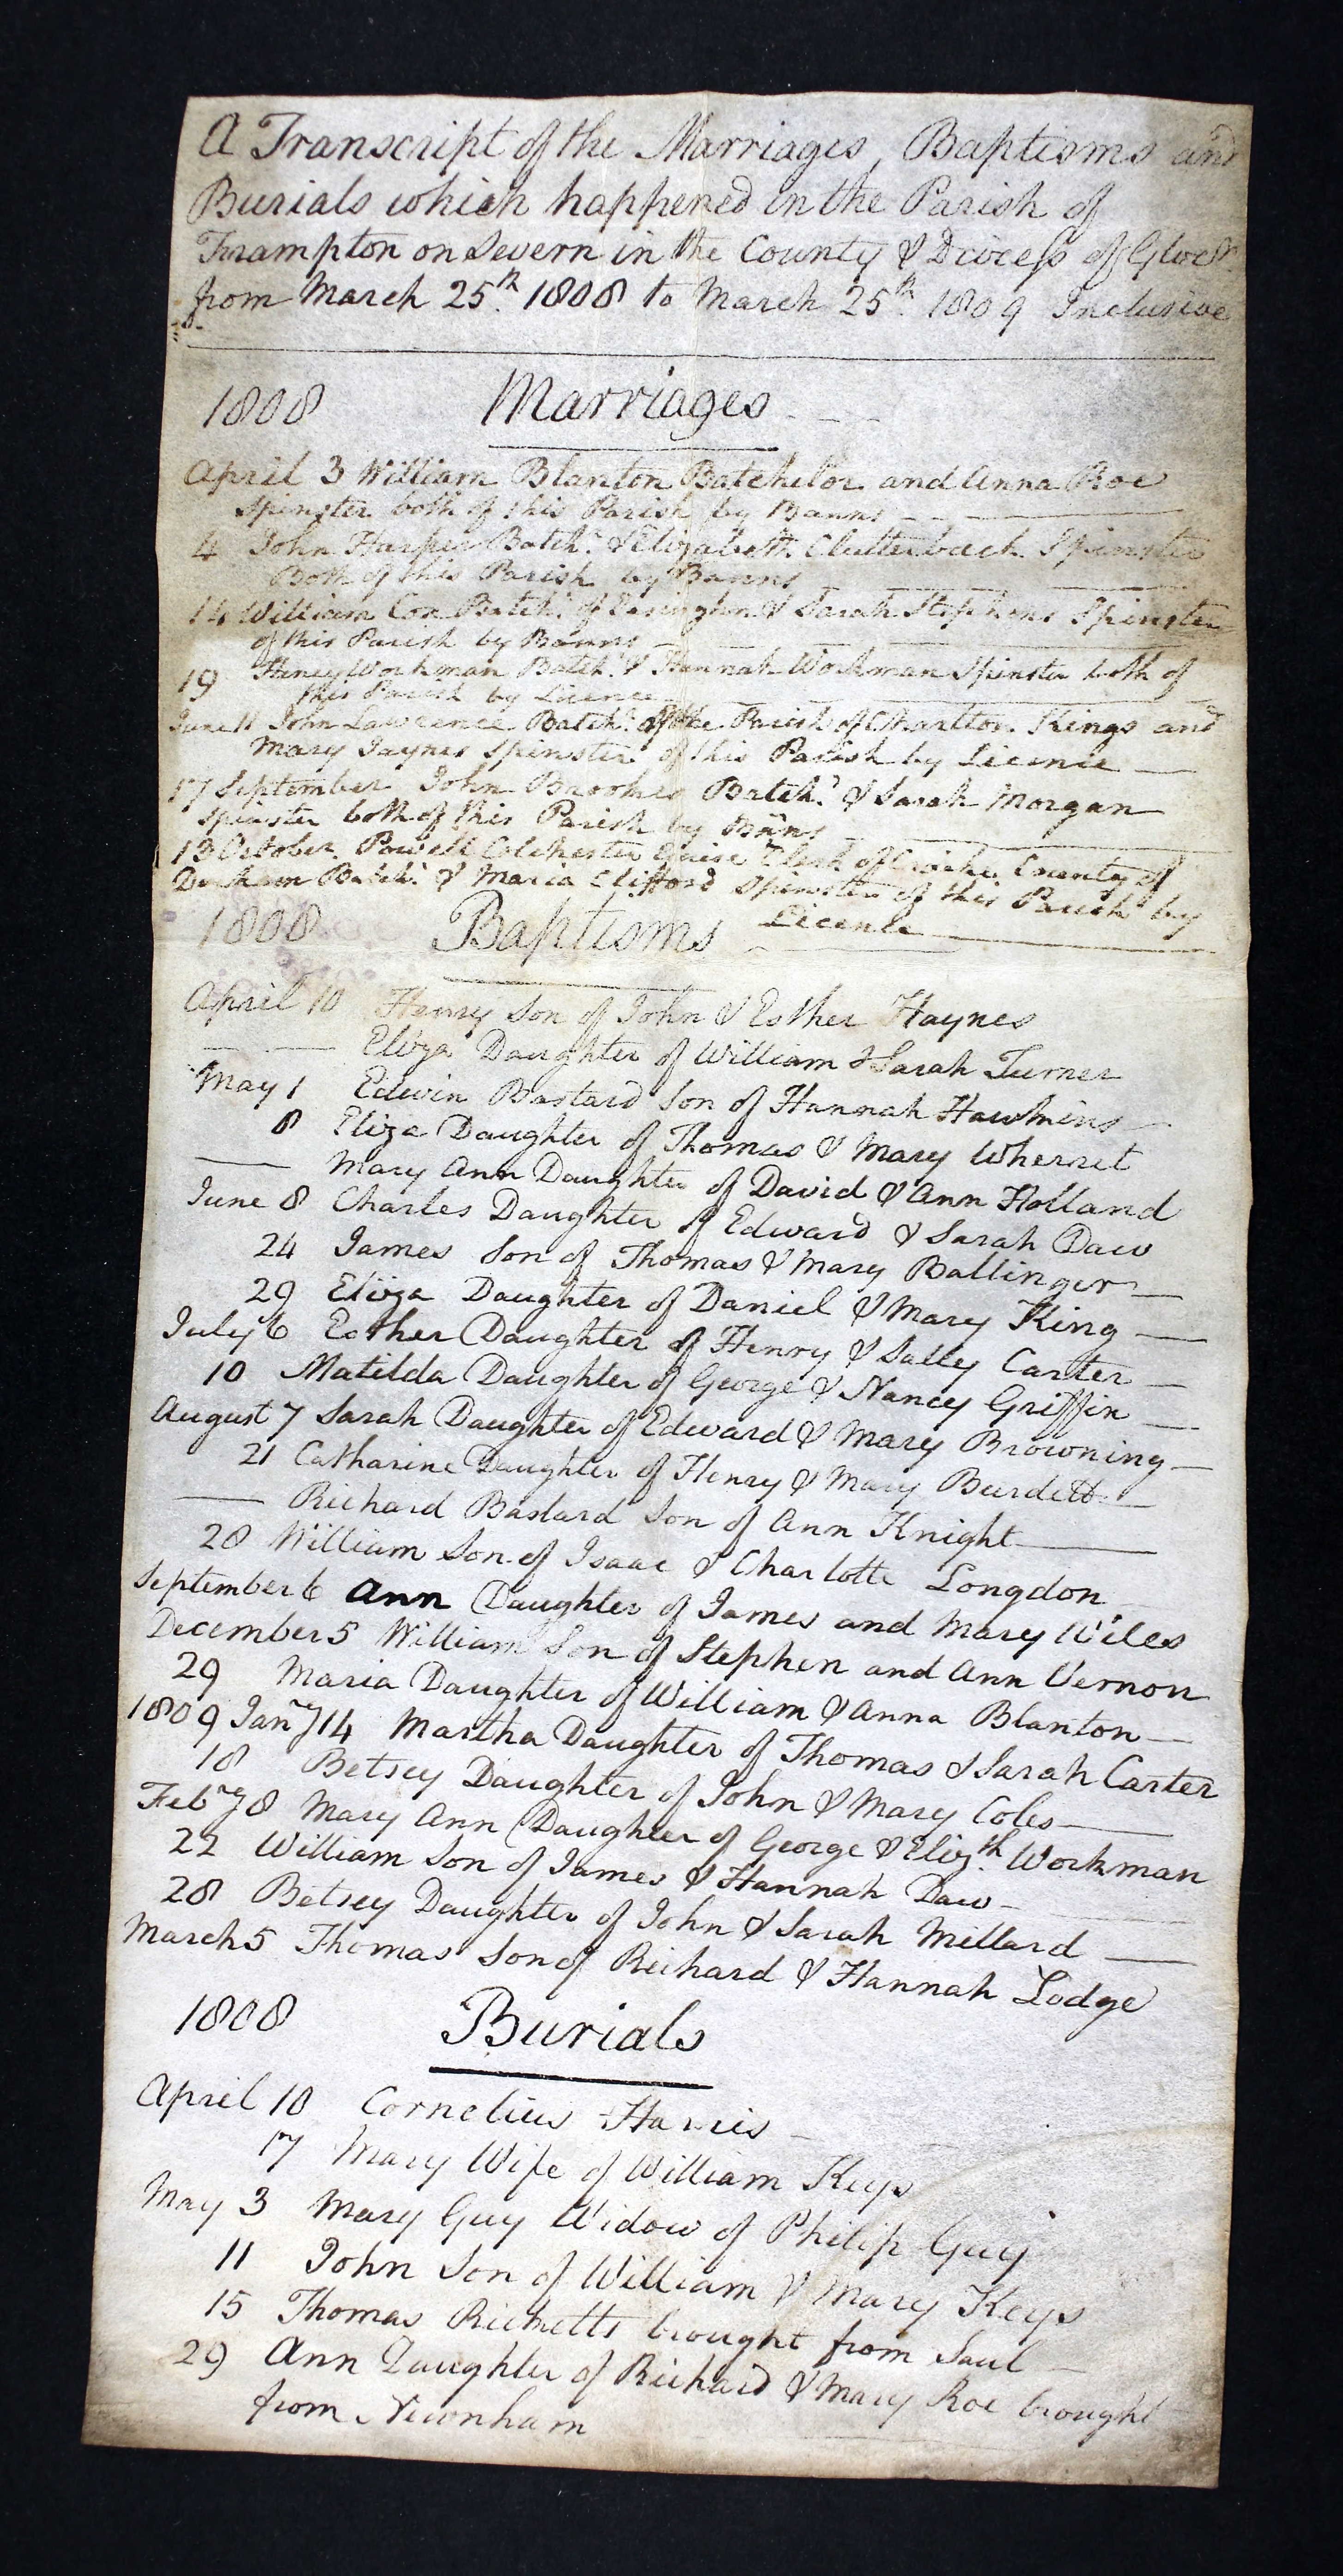 A Transcript of the Marriages, Baptisms and
Burials which happened in the Parish of
Frampton on Severn in the County & Diocess of Glocr.
from March 25th. 1808 to March 25th. 1809 Inclusive
1808 Marriages
April 3 William Blanton Batchelor and Anna Roe
Spinster both of this Parish by Banns
4 John Harper Batchr. & Elizabeth Clutterbuck Spinster
Both of this Parish by Banns
14 William Cox Batchr. of & Sarah Stephens Spinster
of this Parish by Banns
19 Henry Workman Batchr. & Hannah Workman Spinster both of
this Parish by Licence
June 11 John Lawrence Batchr. of the Parish of Charlton Kings and
Mary Jaynes Spinster of this Parish by Licence
17 September John Brookes Batchr. & Sarah Morgan
Spinster both of this Parish by Banns
13 October Powell Colchester Guise Clerk of County of
Durham Batchr. & Maria Clifford Spinster of this Parish by
Licence
1808 Baptisms
April 10 Henry Son of John & Esther Haynes
Eliza Daughter of William & Sarah Turner
May 1 Edwin Bastard Son of Hannah Hawkins
8 Eliza Daughter of Thomas & Mary Wherret
Mary Ann Daughter of David & Ann Holland
June 8 Charles Daughter of Edward & Sarah Daw
24 James Son of Thomas & Mary Ballinger
29 Eliza Daughter of Daniel & Mary King
July 6 Esther Daughter of Henry & Sally Carter
10 Matilda Daughter of George & Nancy Griffin
August 7 Sarah Daughter of Edward & Mary Browning
21 Catharine Daughter of Henry & Mary Burdett
Richard Bastard Son of Ann Knight
28 William Son of Isaac & Charlotte Longdon
September 6 Ann Daughter of James and Mary Wiles
December 5 William Son of Stephen and Ann Vernon
29 Maria Daughter of William & Anna Blanton
1809 Jany 14 Martha Daughter of Thomas & Sarah Carter
18 Betsey Daughter of John & Mary Coles
Feby 8 Mary Ann Daughter of George & Elizth. Workman
22 William Son of James & Hannah Daw
28 Betsey Daughter of John & Sarah Millard
March 5 Thomas Son of Richard & Hannah Lodge
1808 Burials
April 10 Cornelius Harris
17 Mary Wife of William Keys
May 3 Mary Guy Widow of Philip Guy
11 John Son of William & Mary Keys
15 Thomas Ricketts brought from Saul
29 Ann Daughter of Richard & Mary Roe brought
from Newnham